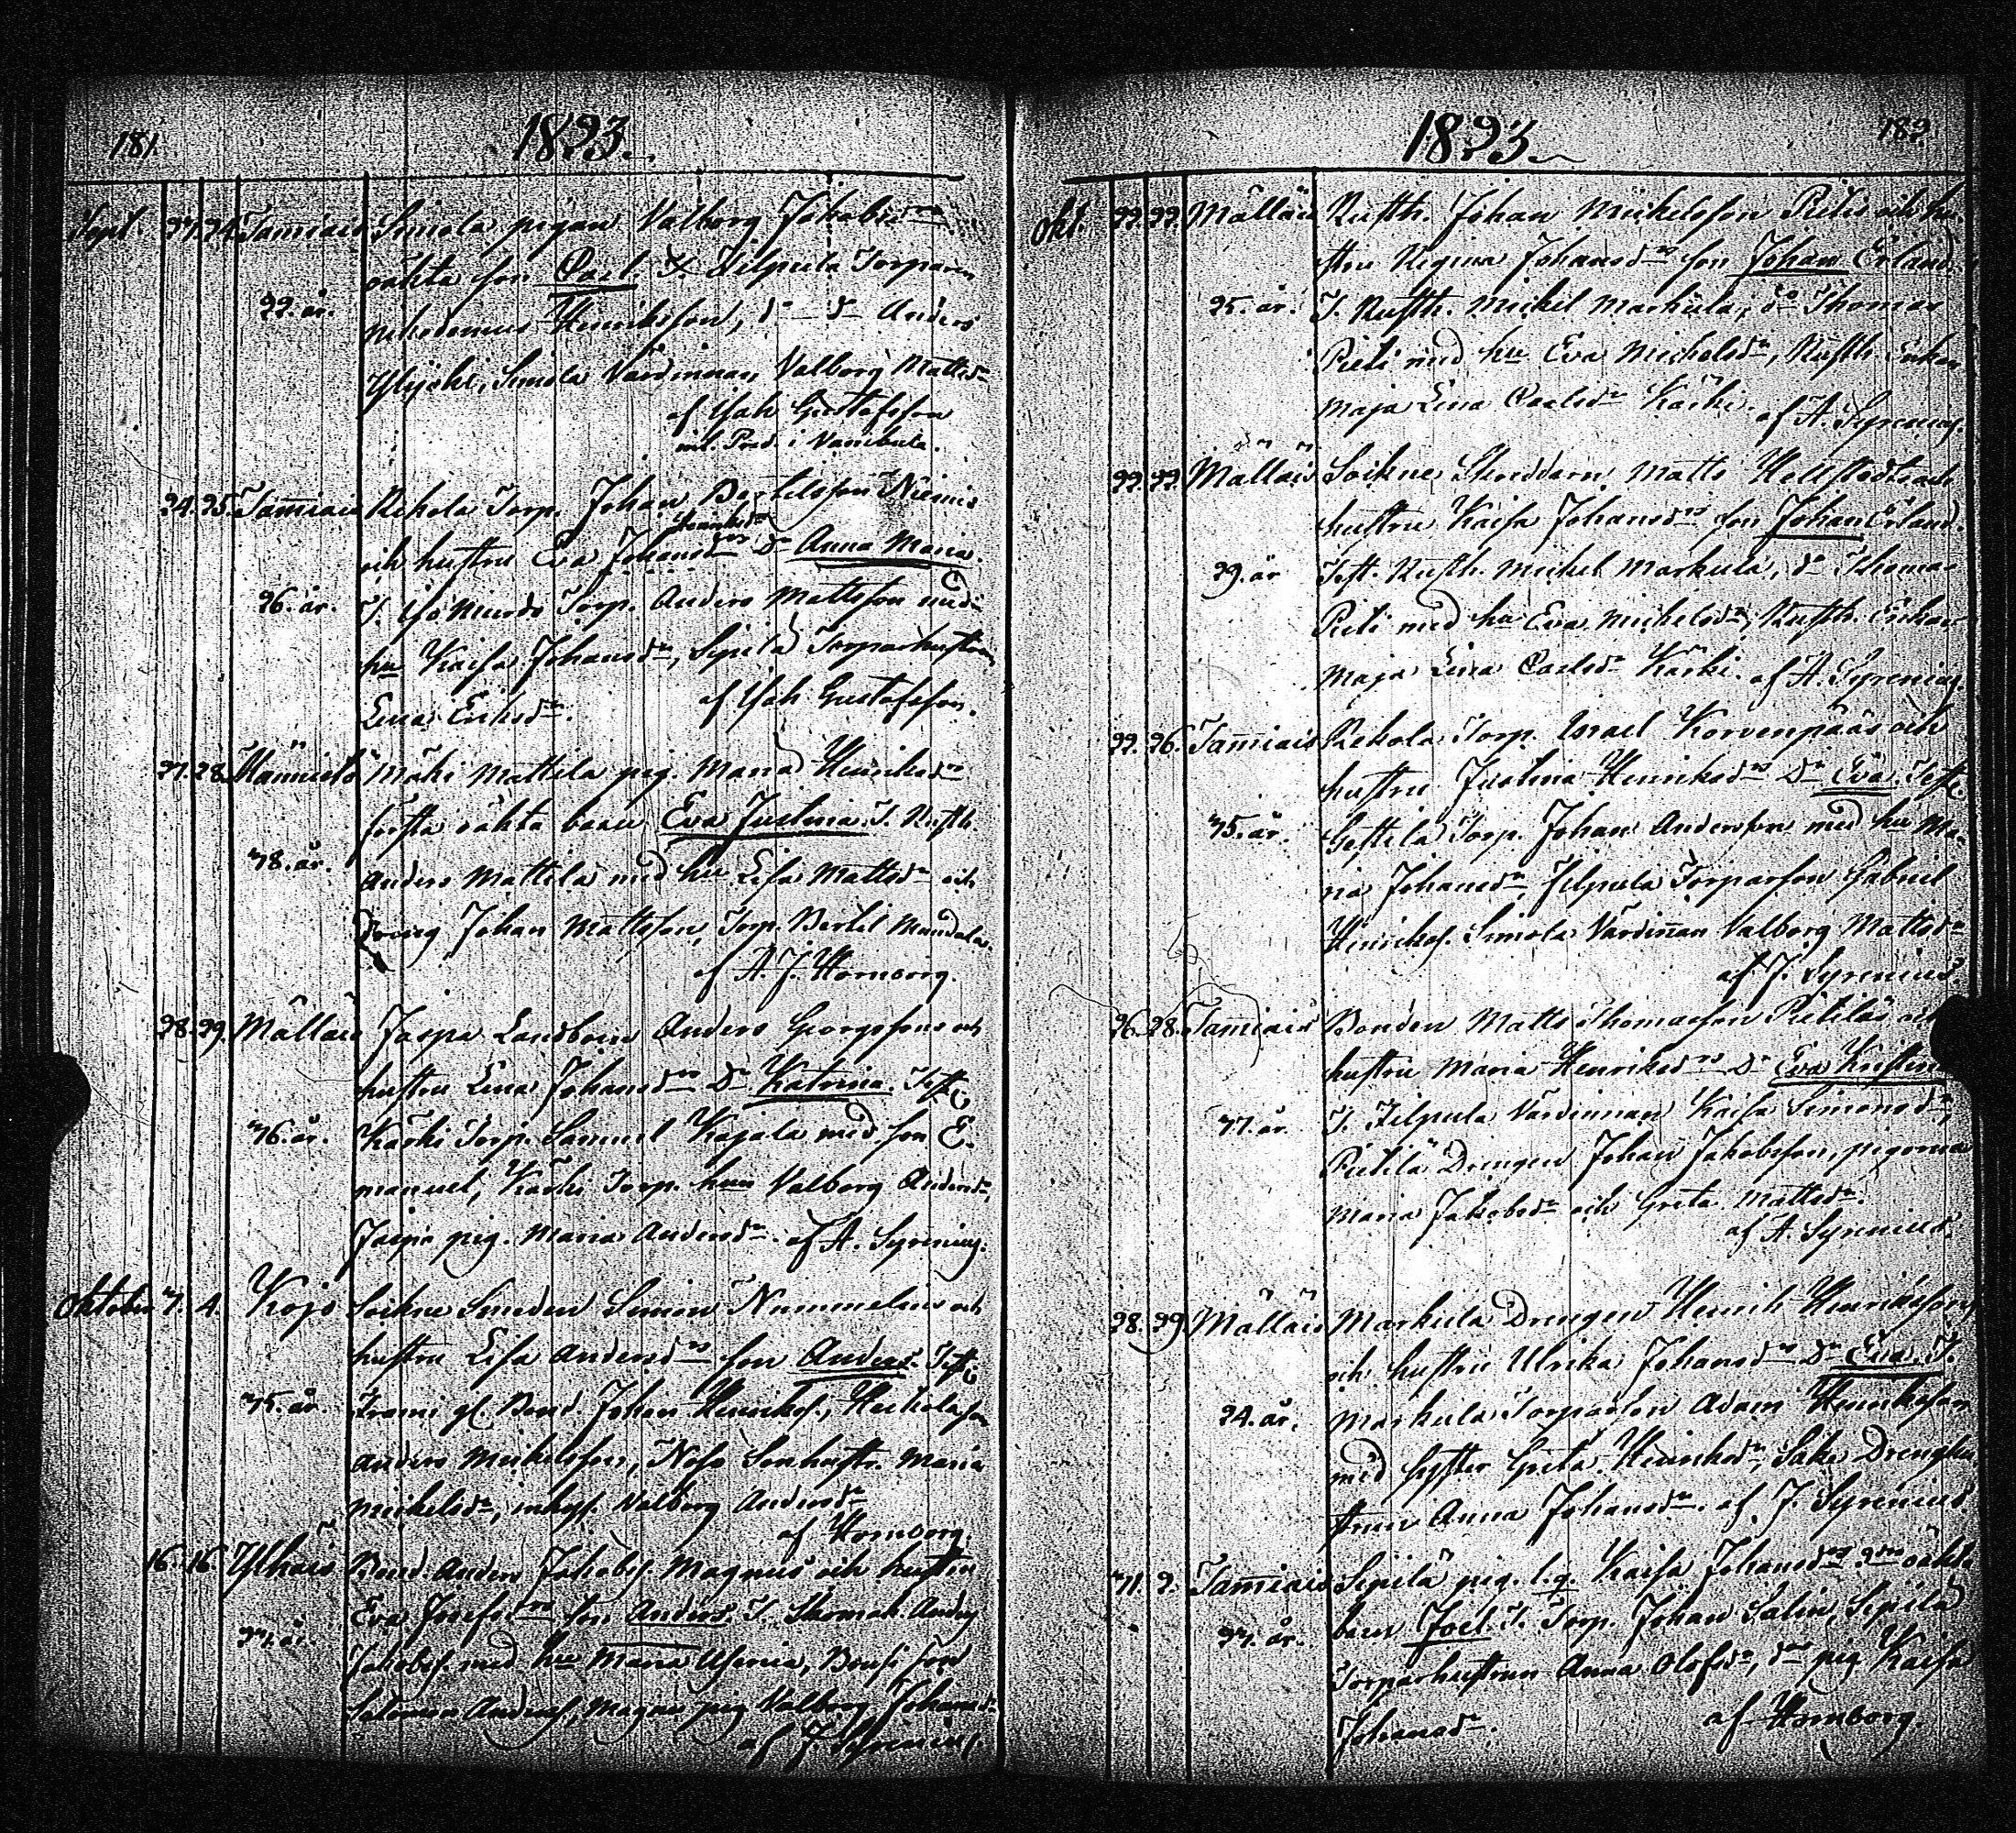 181.
1823.
Sept. 27. 24. Tamiais Simola pigan Valborg Jakobsd:rs
oäkta son Carl. T. Filpula Torparen
22. år. Nikodemus Henriksson, d:o d:o Anders
Ylijoki, Simola Värdinnan Valborg Mattsd:r
af Isak Gustafsson
mil. Pred. i Varribula.
24. 25. Tamiais Rekola Torp. Johan Bertelsson Niemis
Henriksd:rs
och hustru Eva Johansd:rs D:r Anna Maria.
26. år. T. Torp. Anders Mattsson med
hu Kaisa Johansd:r, Sipilä Torparhustrun
Lena Eriksd:r. af Isak Gustafsson.
27. 28. Mannisto Mäki Mattila pig. Maria Henriksd:rs
första oäkta barn Eva Justina. T. Rusth.
78. år. Anders Mattila med hu Lisa Mattsd:r och
Dreng Johan Mattsson, Torp. Bertil Mandala.
af A. J. Hornborg.
28. 29. Mällais Jaspa Landbon Anders Georgssons och
hustru Lena Johansd:rs D:r Katrina. Test:
76. år. Kärki Torp. Samuel Kajala med son E-
manuel, Kärki Torp. hun Valborg Andersd:r,
Jaspa pig. Maria Andersd:r. af A. Syrenius.
Oktober 7. 4. Kojo Sockne Smeden Simon Nummelins och
hustru Lisa Andersd:rs son Anders. Test:
75. år. Frami gl. Bond. Johan Henrikss., Heikola son
Anders Mickelsson, Sonhustr. Maria
Mickelsd:r, inhys. Valborg Andersd:r
af Hornborg.
16. 16. Ylhais Bond. Anders Jakobss. Magnus och hustru
Eva Josefsd:rs son Anders. T. Anders
27. år. Jakobss. med hu Maria son
Salomon Anderss., Magnus pig Valborg Johansd:r
af J. Syrenius.
182.
1823.
Okt. 22. 22. Mällais Rusth. Johan Mickelsson Pietis och hu-
stru Regina Johansd:rs son Johan Erland.
25. år. T. Rusth. Mickel Markula, d:o Thomas
Pieti med hu Eva Mickelsd:r, Rusth. Enkan
Maja Lena Carlsd:r Kärki. af A. Syrenius.
22. 22. Mällais Sockne Skreddarn Matts Hellstedts och
hustru Kaisa Johansd:rs son Johan Erland.
29. år Test. Rusth. Mickel Markula, d:o Thomas
Pieti med hu Eva Mickelsd:r, Rusth. Enkan
Maja Lena Carlsd:r Kärki. af A. Syrenius.
22. 26. Tamiais Rekola Torp. Israel Korvenpääs och
hustru Justina Henriksd:rs D:r Eva. Test:
75. år. Torp. Johan Andersson med hu Ma-
ria Johansd:r Filpula Torparson Gabriel
Henrikss. Simola Värdinnan Valborg Mattsd:r
af J. Syrenius
26. 28. Tamiais Bonden Matts Thomasson Pietiläs och
hustru Maria Henriksd:rs D:r Eva Kristina
77. år. T. Filpula Värdinnan Kaisa Simonsd:r,
Pietilä Drengen Johan Jakobsson, pigorna
Maria Jakobsd:r och Greta Mattsd:r.
af A. Syrenius.
28. 29. Mällais Markula Drengen Henrik Henrikssons
och hustru Ulrika Johansd:rs D:r Eva. T.
24. år. Markula Torparson Adam Henriksson
med syster Greta Henriksd:r, Drenghu-
strun Anna Johansd:r. af J. Syrenius
71. 2. Tamiais Sipilä pig. l.q. Kaisa Johansd:rs 2:dra oäkta
27. år. barn Joel. T. Torp. Johan Salin, Sipilä
Torparhustrun Anna Olofsd:r, d:o pig Kaisa
Johansd:r. af Hornborg.